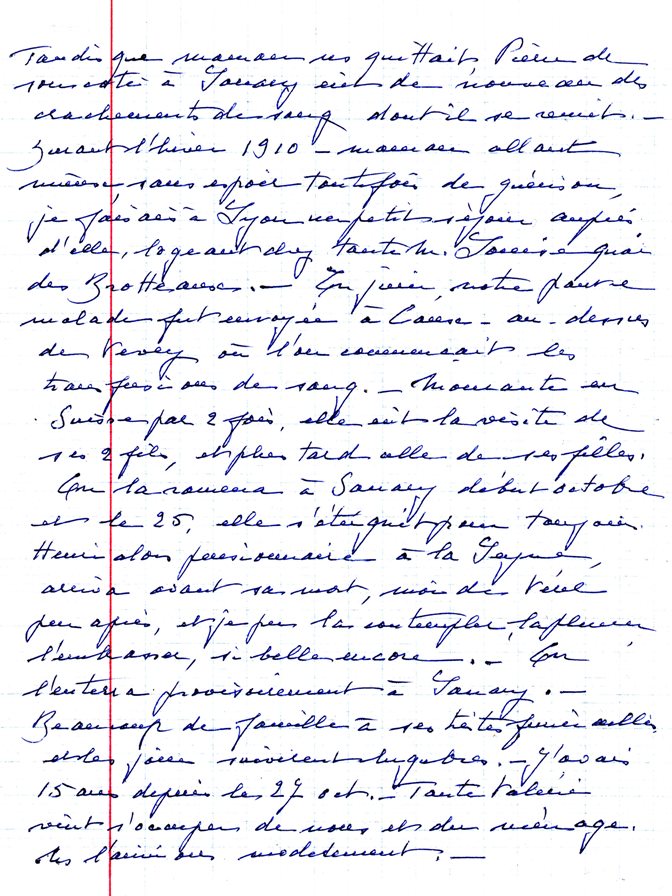 Tandis que maman ns quittait Pierre de
son coté à Sanary eut de nouveau des
crachements de sang dont il se remit. –
Durant l'hiver 1910 – maman allant
mieux sans espoir toutefois de guérison,
je faisais à Lyon un petit séjour auprès
d'elle, logeant chez tante M. Louise quai
des Brotteaux. – En juin, notre pauvre
malade fut envoyée à – au-dessus
de Vevey où l'on commençait les
transfusions de sang. – Mourante en
Suisse par 2 fois, elle eut la visite de
ses 2 fils, et plus tard celle de ses filles.
On la ramena à Sanary début octobre
et le 25, elle s'éteignit pour toujours.
Henri alors pensionnaire à la Seyne,
arriva avant sa mort, moi de
peu après, et je pus la contempler, la pleurer
l'embrasser, si belle encore. – On
l'enterra provisoirement à Sanary. –
Beaucoup de famille à ses tristes funérailles
et les jours suivirent lugubres. – J'avais
15 ans depuis le 27 oct. – Tante Valérie
vint s'occuper de nous et du ménage.
modestement. –